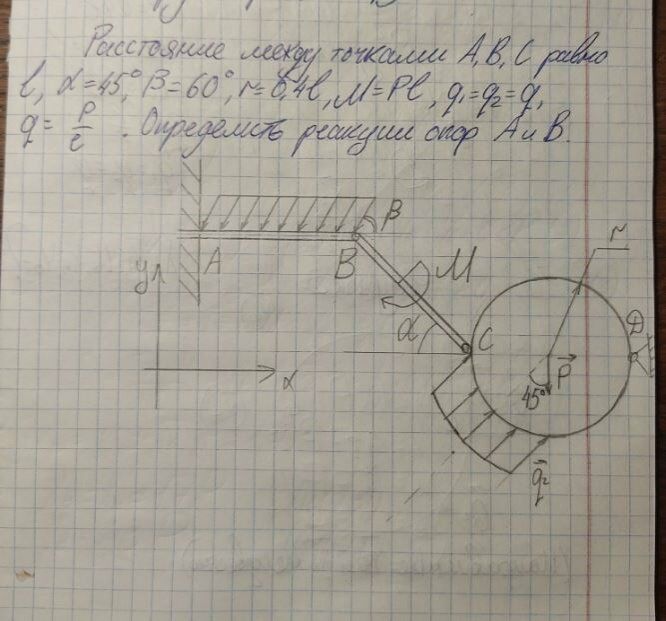 Расстояние между точками A, B, C равно
l, α=45°, β=60°, r=0,4l, M=Pl, q₁=q₂=q,
q = P/l . Определить реакции опор A и B.
r
β
A
B
M
y
D
α
C
P
x
45°
q₂